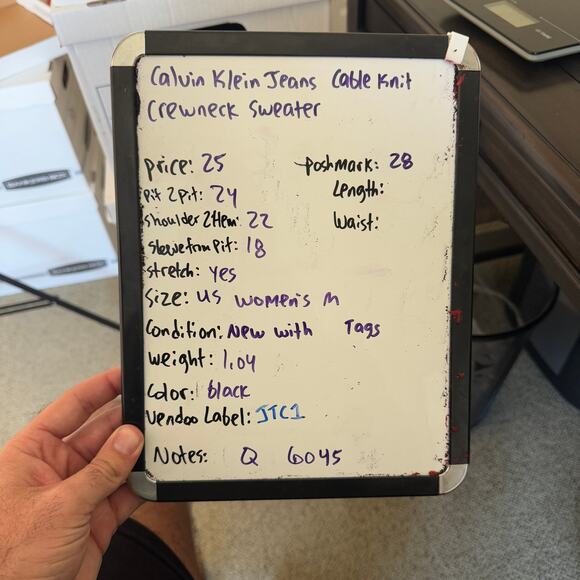 Calvin Klein Jeans Cable Knit
Crewneck Sweater
Price: 25
Poshmark: 28
Pit 2 Pit: 24
Length:
Shoulder 2 Hem: 22
Waist:
Sleeve from Pit: 18
Stretch: Yes
Size: US Women's M
Condition: New with Tags
Weight: 1.04
Color: black
Vendoo Label: JTC1
Notes: Q 6045